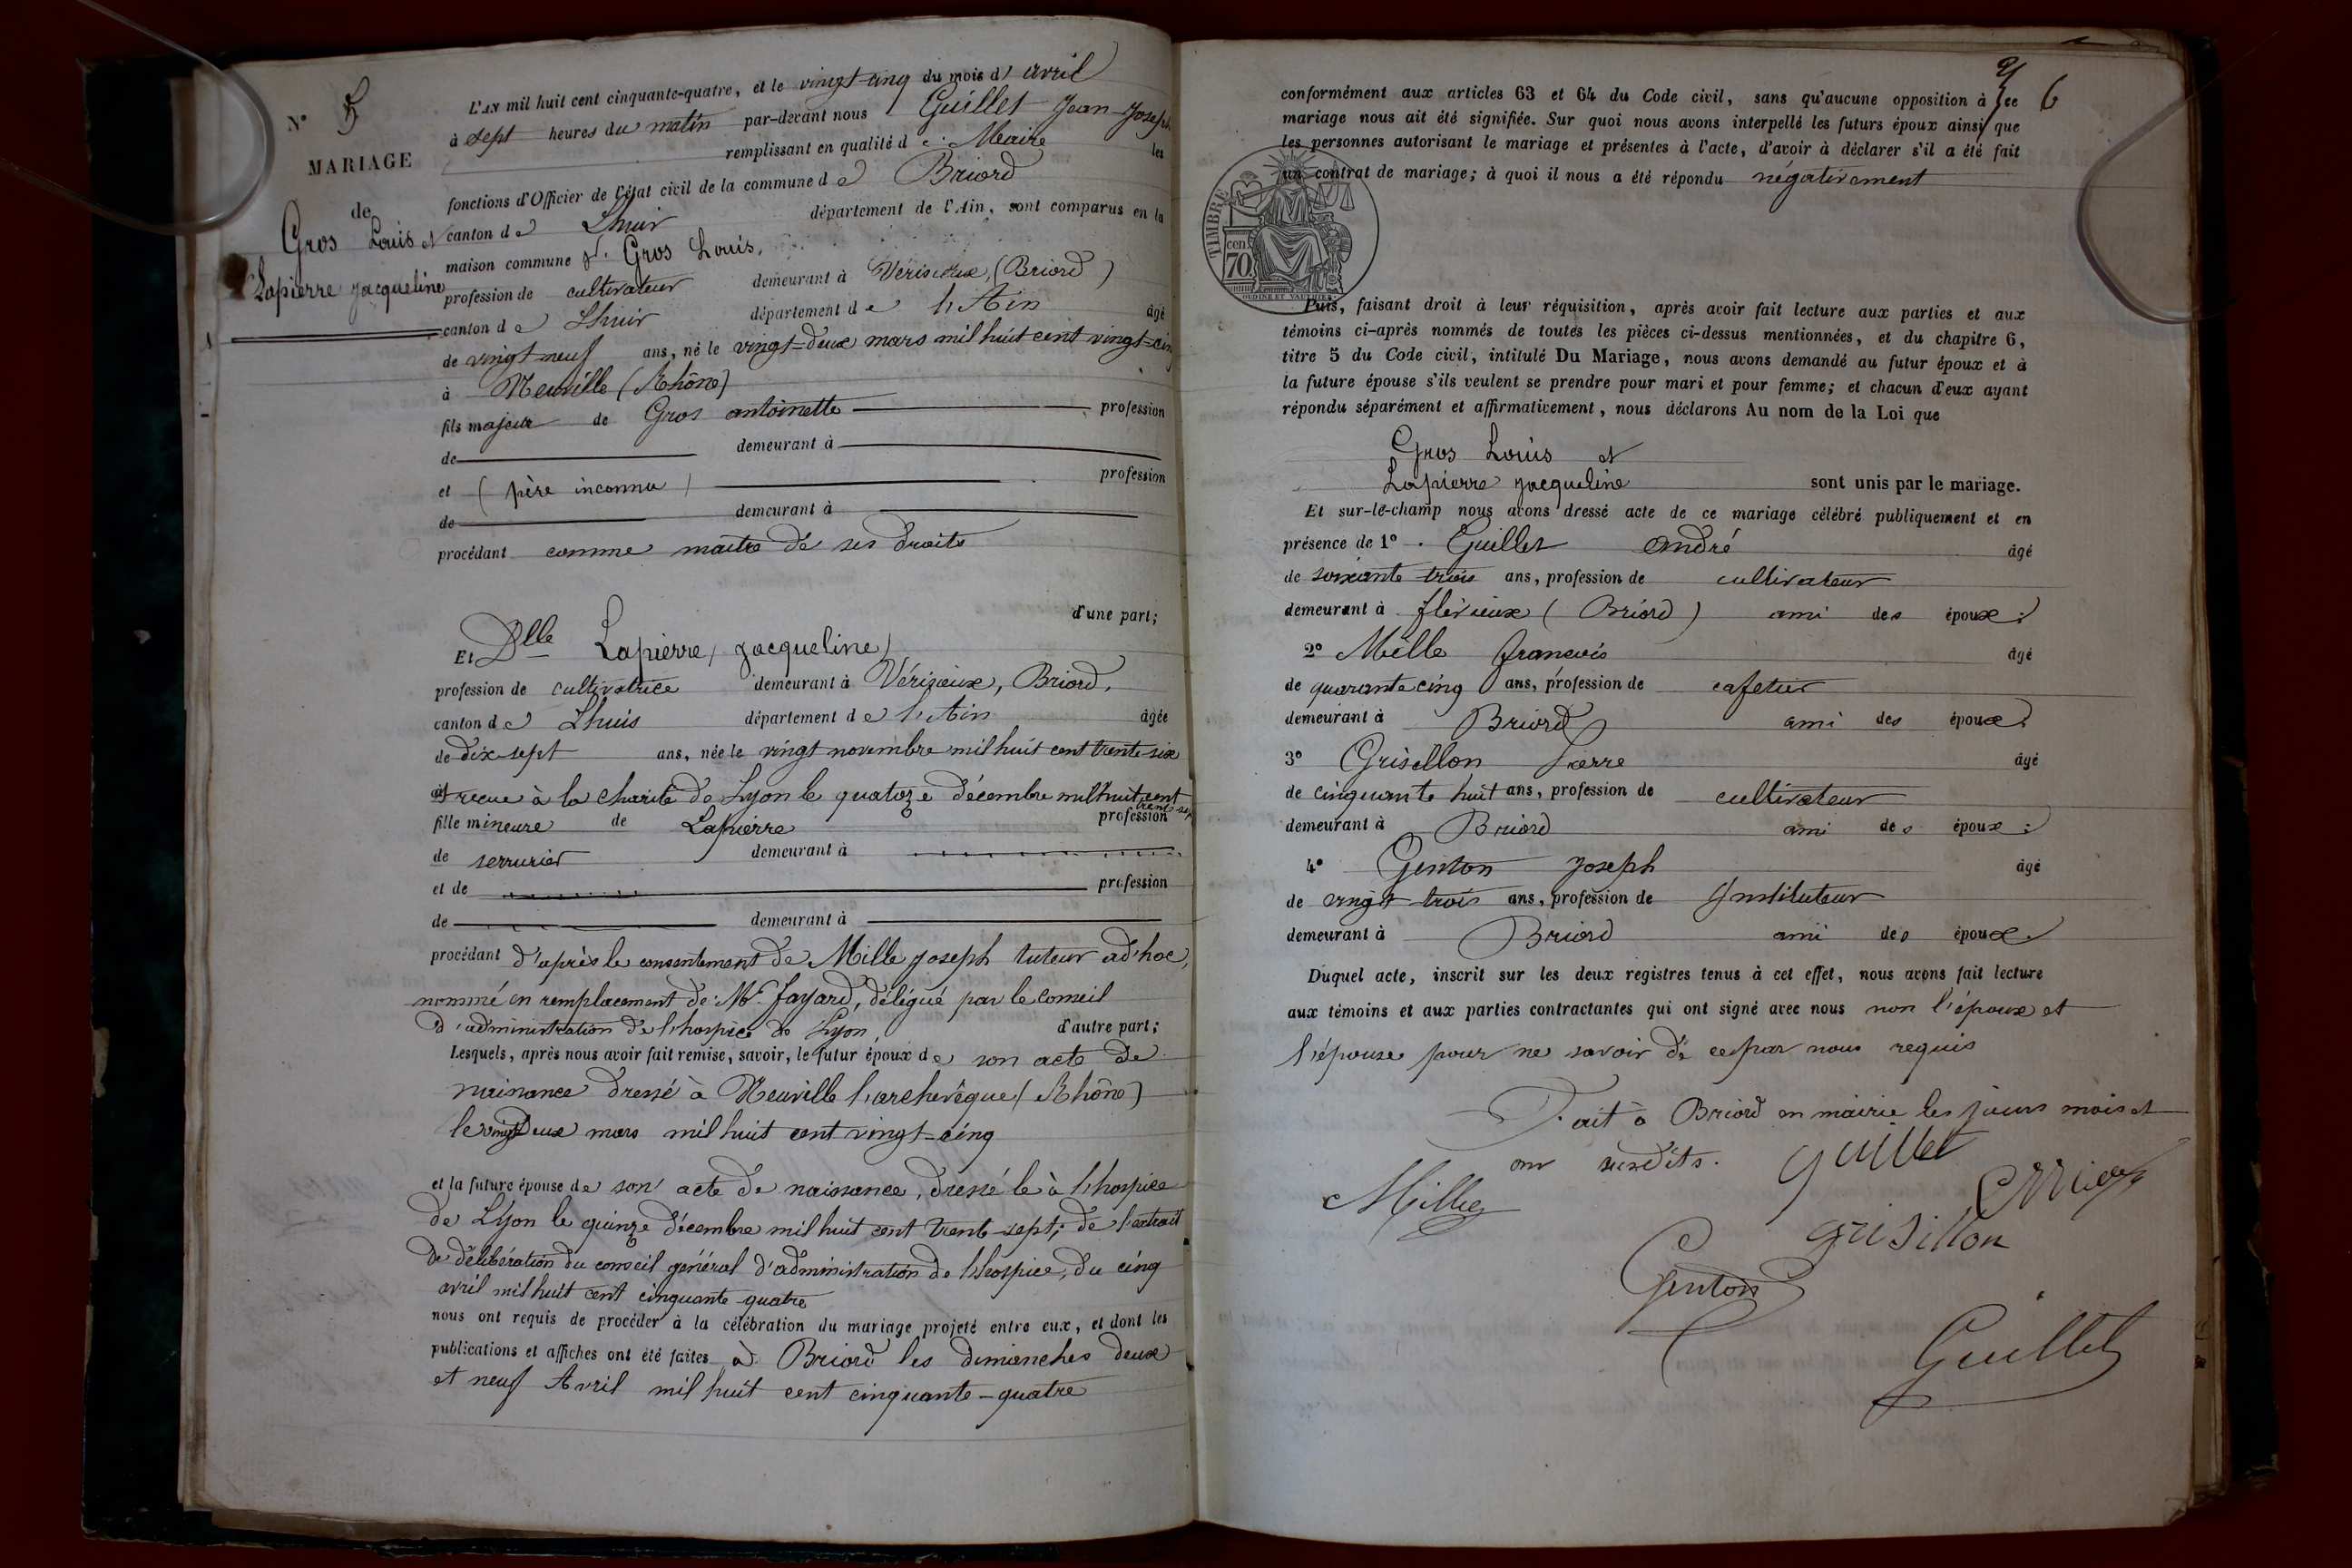 N° 5
MARIAGE
de
Gros Louis et
Lapierre jacqueline
L'AN mil huit cent cinquante-quatre, et le vingt-cinq du mois d' avril
à sept heures du matin par-devant nous Guillet Jean-Joseph
remplissant en qualité de Maire les
fonctions d'Officier de l'état civil de la commune de Briord
canton de Lhuis département de l'Ain, sont comparus en la
maison commune Sr. Gros Louis,
profession de cultivateur demeurant à Verisieux, (Briord)
canton de Lhuis département de l'Ain âgé
de vingt-neuf ans, né le vingt-deux mars mil huit cent vingt-cinq
à Neuville (Rhône)
fils majeur de Gros antoinette profession
de demeurant à
et (père inconnu) profession
de demeurant à
procédant comme maître de ses droits
d'une part;
Et Dlle Lapierre, jacqueline,
profession de cultivatrice demeurant à Vérizieux, Briord,
canton de Lhuis département de l'Ain âgée
de dix-sept ans, née le vingt novembre mil huit cent trente-six
et recue à la charité de Lyon le quatorze décembre mil huit cent
trente-sept
fille mineure de Lapierre profession
de serrurier demeurant à
et de profession
de demeurant à
procédant d'après le consentement de Mille joseph tuteur ad'hoc,
nommé en remplacement de Mr. Fayard, délégué par le Conseil
d'administration de l'hospice de Lyon, d'autre part;
Lesquels, après nous avoir fait remise, savoir, le futur époux de son acte de
naissance dressé à Neuville l'archevêque (Rhône)
le vingt deux mars mil huit cent vingt-cinq
et la future épouse de son acte de naissance, dressé le à l'hospice
de Lyon le quinze décembre mil huit cent trente-sept; de l'extrait
de délibération du conseil général d'administration de l'hospice, du cinq
avril mil huit cent cinquante-quatre
nous ont requis de procéder à la célébration du mariage projeté entre eux, et dont les
publications et affiches ont été faites à Briord les dimanches deux
et neuf Avril mil huit cent cinquante-quatre
6
conformément aux articles 63 et 64 du Code civil, sans qu'aucune opposition à ce
mariage nous ait été signifiée. Sur quoi nous avons interpellé les futurs époux ainsi que
les personnes autorisant le mariage et présentes à l'acte, d'avoir à déclarer s'il a été fait
un contrat de mariage; à quoi il nous a été répondu négativement
TIMBRE
cen.
70
OUDINE ET VAUTHIER
Puis, faisant droit à leur réquisition, après avoir fait lecture aux parties et aux
témoins ci-après nommés de toutes les pièces ci-dessus mentionnées, et du chapitre 6,
titre 5 du Code civil, intitulé Du Mariage, nous avons demandé au futur époux et à
la future épouse s'ils veulent se prendre pour mari et pour femme; et chacun d'eux ayant
répondu séparément et affirmativement, nous déclarons Au nom de la Loi que
Gros Louis et
Lapierre jacqueline sont unis par le mariage.
Et sur-le-champ nous avons dressé acte de ce mariage célébré publiquement et en
présence de 1° Guillet André âgé
de soixante trois ans, profession de cultivateur
demeurant à flévieux (Briord) ami des époux;
2° Mille francois âgé
de quarante cinq ans, profession de cafetier
demeurant à Briord ami des époux;
3° Grisillon Pierre âgé
de cinquante huit ans, profession de cultivateur
demeurant à Briord ami des époux;
4° Genton joseph âgé
de vingt trois ans, profession de Instituteur
demeurant à Briord ami des époux.
Duquel acte, inscrit sur les deux registres tenus à cet effet, nous avons fait lecture
aux témoins et aux parties contractantes qui ont signé avec nous non l'époux et
l'épouse pour ne savoir de ce par nous requis
Fait à Briord en mairie les jours mois et
an susdits. guillet
Mille
grisillon
Genton
Guillet